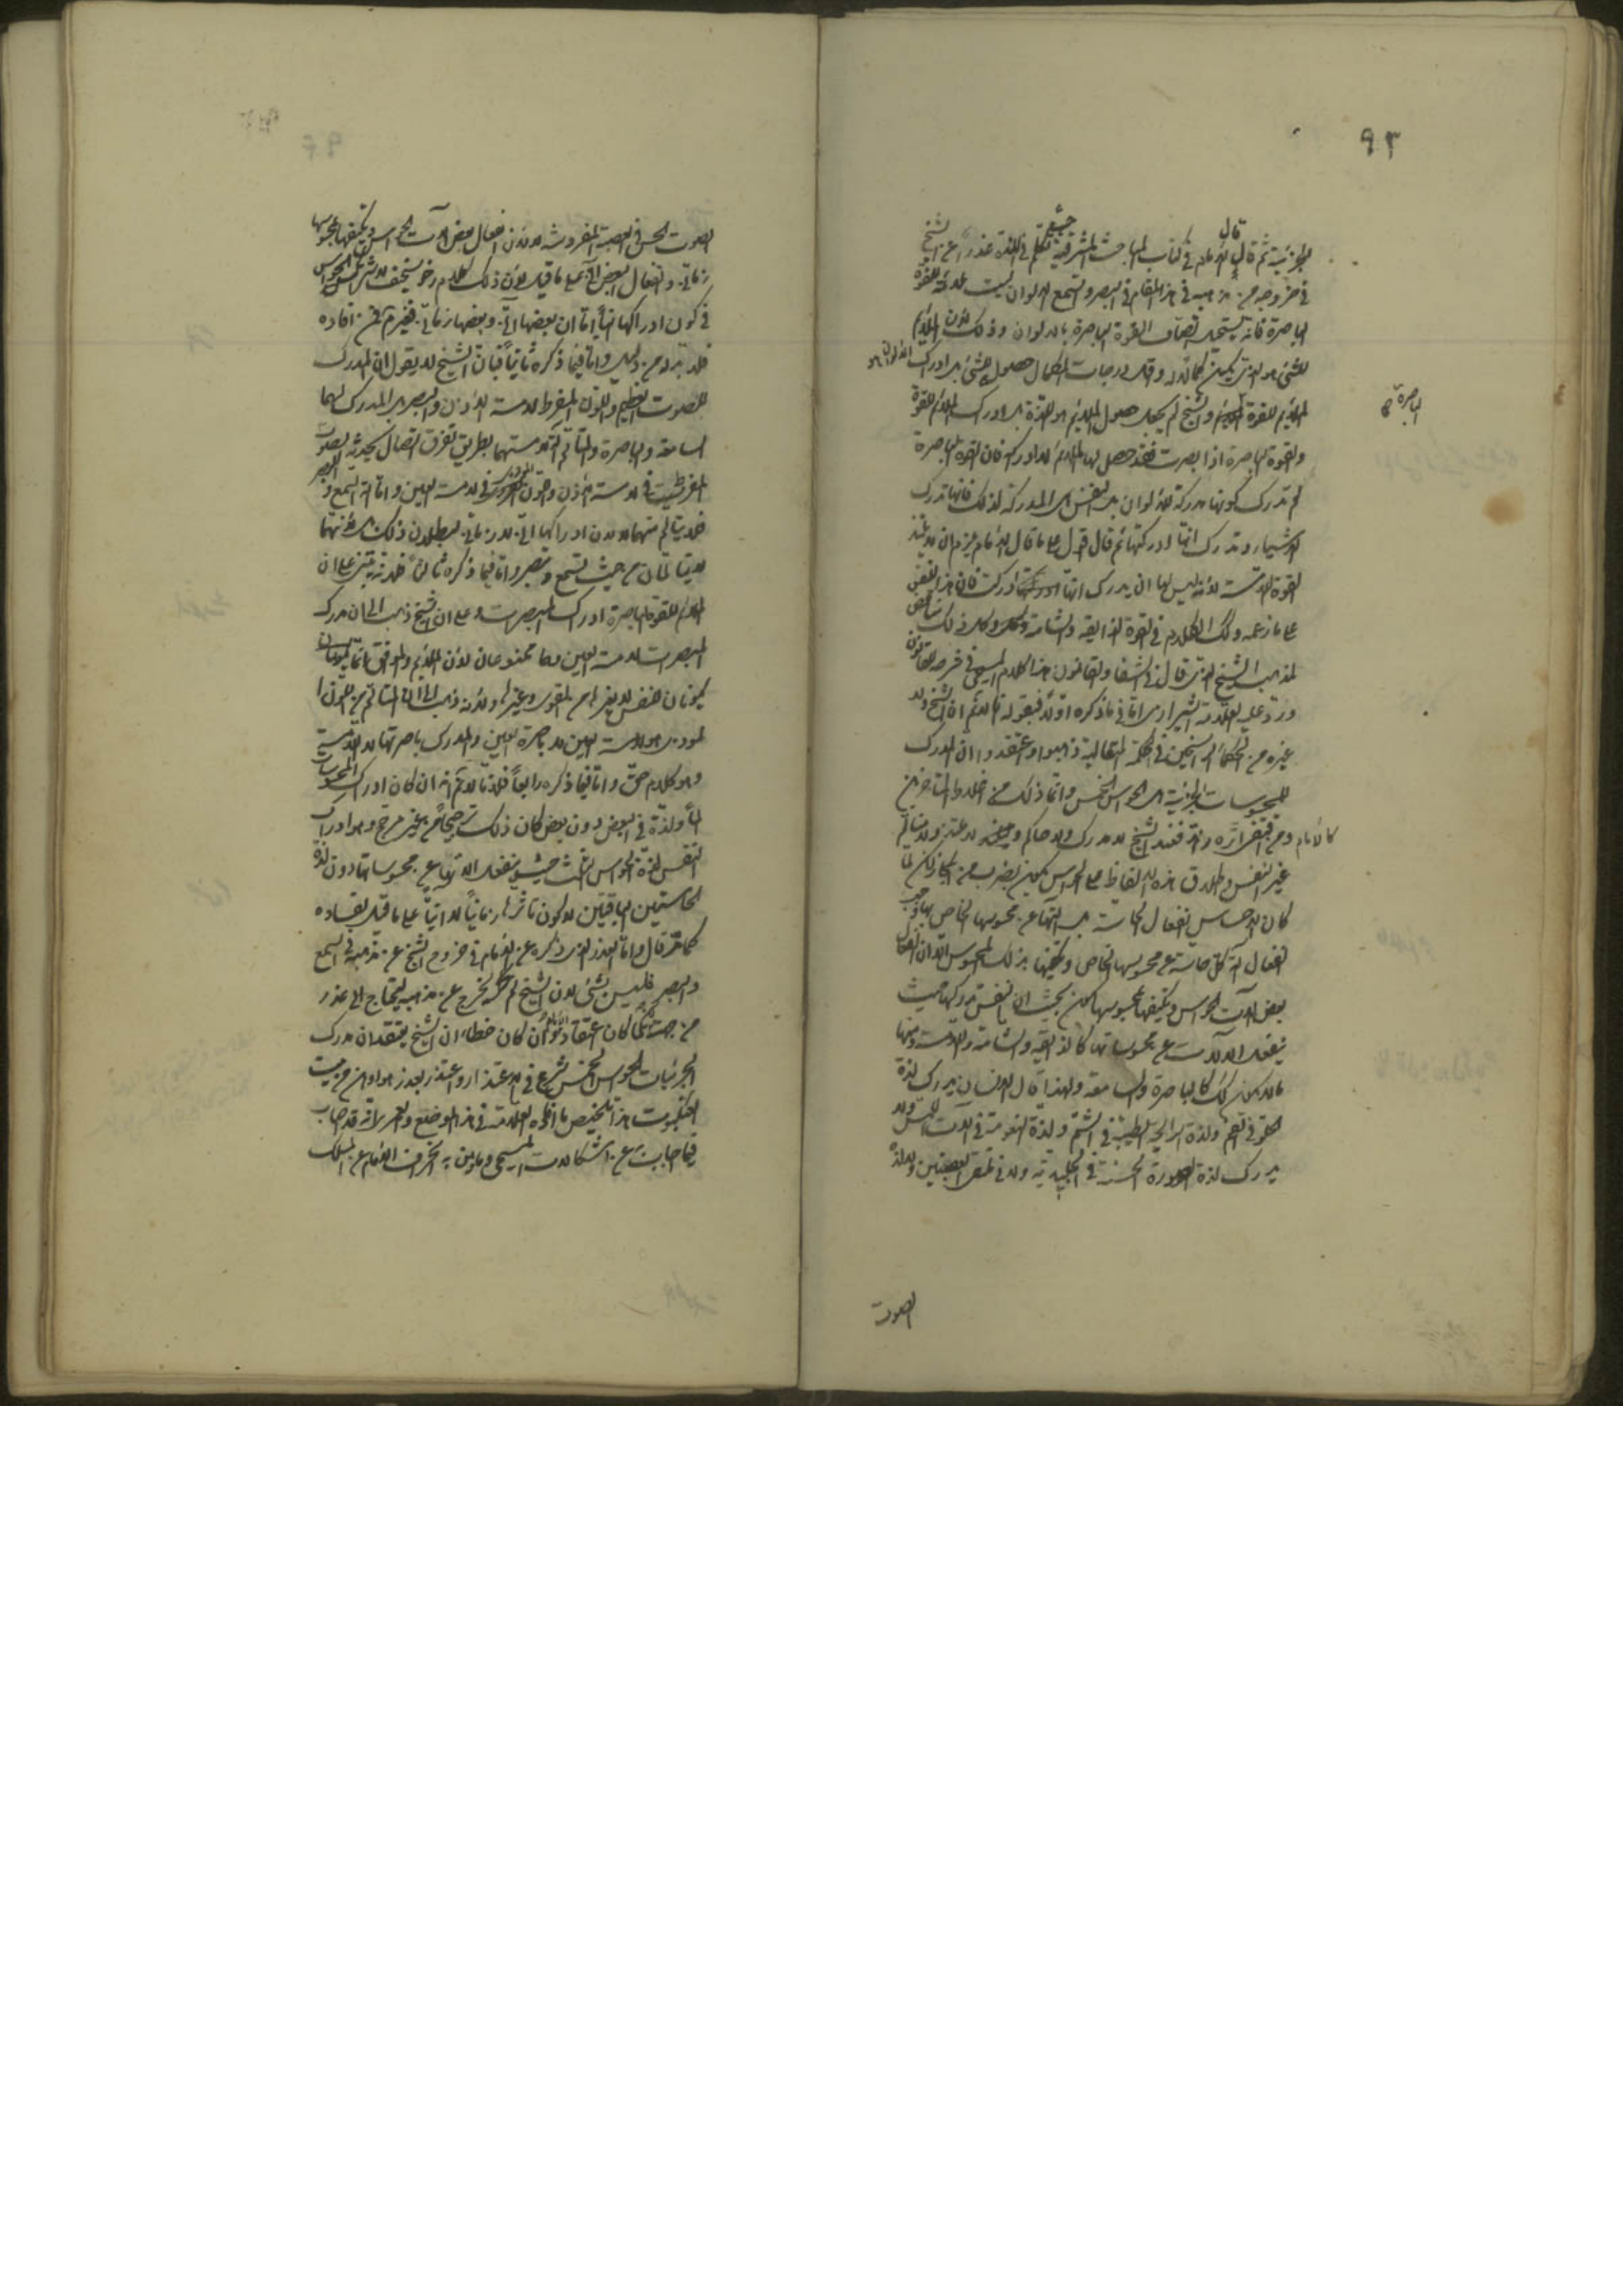 ٩٣
الجزئية ثم قال قال الإمام في كتاب المباحث المشرقية حيث تكلم في اللذة عذرا عن الشيخ
في خروجه من مذهبه في هذا المقام في البصر والسمع الالوان ليست ملائمة للقوة
الباصرة فانه يستحيل اتصاف القوة الباصرة بالالوان وذلك لان الملايم
للشئ هو الذي يكون كمالا له واقل درجات الكمال حصوله للشئ بل ادراك الالوان هو
الملايم للقوة الباصرة والشيخ لم يجعل حصول الملايم هو اللذة بل ادراك الملايم للقوة
والقوة الباصرة اذا ابصرت فقد حصل لها الملايم لا ادراكه فان القوة الباصرة
لم تدرك كونها مدركة للالوان بل النفس هي المدركة لذلك فانها تدرك
الاشياء وتدرك انها ادركتها ثم قال اقول على ما قال الامام يلزم ان لا يلتذ
القوة اللامسة لانه ليس لها ان يدرك انها ادركت فان هذا للنفس
على ما زعمه وكذلك الكلام في القوة الذايقة والشامة وكل ذلك مناقض
لمذهب الشيخ الذي قال في الشفا والقانون هذا كلام المسيحي في شرحه للقانون
ورد عليه العلامة الشيرازي اما في ما ذكره اولا فبقوله لا نم ان الشيخ ولا
غيره من الحكماء الراسخين في الحكمة المتعالية ذهبوا واعتقدوا ان المدرك
للمحسوسات الجزئية هي الحواس الخمس وانما ذلك من اغلاط المتأخرين
كالامام ومن يقتفي اثره والا فعند الشيخ لا مدرك ولا حاكم ولا ملتذ ولا متألم
غير النفس واطلاق هذه الالفاظ على الحواس يكون بضرب من المجاز لكن لما
كان الاحساس انفعال الحاسة الخاص بها وجب
انفعال آلة كل حاسة عن محسوسها الخاص وتكيفها بذلك المحسوس الا ان انفعال
بعض آلات الحواس وتكيفها بمحسوسها يكون بحيث ان النفس تدركها حيث
ينفعل الآلات عن محسوساتها كالذايقة والشامة واللامسة ومنها
ما لا يكون كذلك كالباصرة والسامعة ولهذا قال الانسان يدرك لذة
الحلو في الفم ولذة الرايحة الطيبة في الشم ولذة النعومة في آلات اللمس ولا
يدرك لذة الصورة الحسنة في الجليدية ولا في ملتقى العصبتين ولا لذة
الباصرة
الصوت
الصوت الحسن في العصبة المفروشة لا لان انفعال بعض آلات الحواس وتكيفها بمحسوسها
زماني وانفعال البعض آني على ما قيل لان ذلك كلام رخو سخيف
في كون ادراكها آنيا اما ان بعضها آني وبعضها زماني فغير من افاده
فلا بد له من دليل واما فيما ذكره ثانيا فبان الشيخ لا يقول ان المدرك
للصوت العظيم واللون المفرط لامسة الاذن والبصر بل المدرك لهما
السامعة والباصرة والمتألم آلة لامستهما بطريق تفرق اتصال يحدثه الصوت
المفرط في لامسة الاذن واللون المفرط في لامسة العين واما آلة السمع والبصر
فلا يتألم منهما لا لان ادراكها آني لا زماني لبطلان ذلك بل لانهما
لا يتألمان من حيث تسمع وتبصر واما فيما ذكره ثالثا فلانه يبتني على ان
الملايم للقوة الباصرة ادراك المبصرات وعلى ان الشيخ ذهب الى ان مدرك
المبصرات لامسة العين وهما ممنوعان لان الملايم والموافق انما يكونان
يكونان للنفس لا لغيرها من القوى وغيرها ولانه ذهب الى ان المتألم من اللون
الموذي هو لامسة العين لا باصرة العين والمدرك باصرتها لا اللامسة
وهو كلام حق واما فيما ذكره رابعا فلانا لا نم انه ان كان ادراك المحسوسات
الما ولذة في البعض دون بعض كان ذلك ترجيحا من غير مرجح وهو ادراك
النفس لذة الحواس الثلث حيث ينفعل الآلات عن محسوساتها دون لذة
الحاستين الباقيتين لا لكون تأثرها زمانيا لا آنيا على ما قيل لفساده
كما مر قال واما العذر الذي ذكره عن الامام في خروج الشيخ عن مذهبه في السمع
والبصر فليس بشئ لان الشيخ لم يخرج عن مذهبه ليحتاج الى عذر
من جهته لكن لما كان اعتقاد الامام وان كان خطاء ان الشيخ يعتقد ان مدرك
الجزئيات الحواس الخمس شرع في الاعتذار واعتذر بعذر هو اوهن من بيت
العنكبوت هذا تلخيص ما افاده العلامة في هذا الموضع ولعمري انه قد اصاب
فيما اجاب به عن اشكالات المسيحي وما بين به انحراف الامام عن المسلك